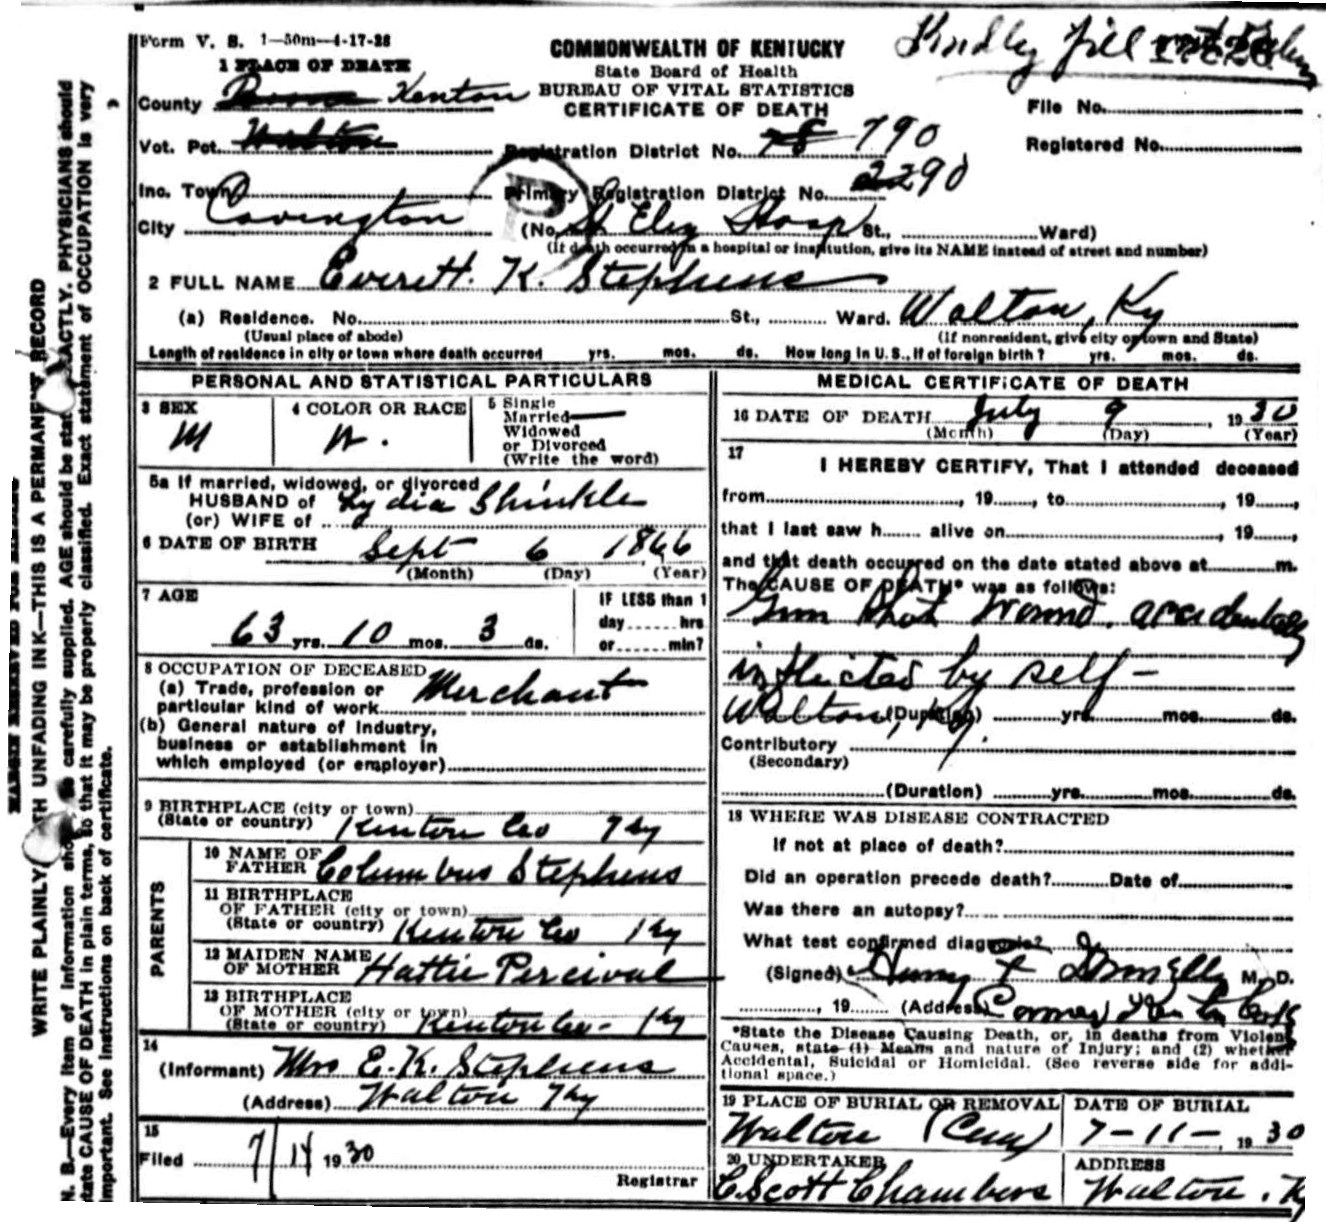 Form V. S. 1—50m—4-17-28
Kindly fill
COMMONWEALTH OF KENTUCKY
State Board of Health
BUREAU OF VITAL STATISTICS
CERTIFICATE OF DEATH
1 PLACE OF DEATH
County Kenton
File No.
Vot. Pct. Walton
Registration District No. 78 790
Registered No.
Inc. Town
Primary Registration District No. 2290
City Covington (No. St Eliz Hosp St., Ward)
(If death occurred in a hospital or institution, give its NAME instead of street and number)
2 FULL NAME Everett. K. Stephens
(a) Residence. No. St., Ward. Walton, Ky
(Usual place of abode) (If nonresident, give city or town and State)
Length of residence in city or town where death occurred yrs. mos. ds. How long in U. S., if of foreign birth? yrs. mos. ds.
PERSONAL AND STATISTICAL PARTICULARS
3 SEX
M
4 COLOR OR RACE
W.
5 Single
Married
Widowed
or Divorced
(Write the word)
5a If married, widowed, or divorced
HUSBAND of Lydia Shinkle
(or) WIFE of
6 DATE OF BIRTH Sept 6 1866
(Month) (Day) (Year)
7 AGE
63 yrs. 10 mos. 3 ds.
IF LESS than 1
day hrs
or min?
8 OCCUPATION OF DECEASED
(a) Trade, profession or
particular kind of work Merchant
(b) General nature of Industry,
business or establishment in
which employed (or employer)
9 BIRTHPLACE (city or town)
(State or country) Kenton Co Ky
PARENTS
10 NAME OF
FATHER Columbus Stephens
11 BIRTHPLACE
OF FATHER (city or town)
(State or country) Kenton Co Ky
12 MAIDEN NAME
OF MOTHER Hattie Percival
13 BIRTHPLACE
OF MOTHER (city or town)
(State or country) Kenton Co- Ky
14
(Informant) Mrs E. K. Stephens
(Address) Walton Ky
15
Filed 7/14 1930
Registrar
MEDICAL CERTIFICATE OF DEATH
16 DATE OF DEATH July 9, 1930
(Month) (Day) (Year)
17
I HEREBY CERTIFY, That I attended deceased
from, 19, to, 19,
that I last saw h alive on, 19,
and that death occurred on the date stated above at m.
The CAUSE OF DEATH* was as follows:
Gun shot wound. accidentally
inflicted by self-
Walton, Ky. (Duration) yrs. mos. ds.
Contributory
(Secondary)
(Duration) yrs. mos. ds.
18 WHERE WAS DISEASE CONTRACTED
If not at place of death?
Did an operation precede death? Date of
Was there an autopsy?
What test confirmed diagnosis?
(Signed) F Donnelly M. D.
, 19 (Address) Coroner Kenton Co Ky
*State the Disease Causing Death, or, in deaths from Violent
Causes, state (1) Means and nature of Injury; and (2) whether
Accidental, Suicidal or Homicidal. (See reverse side for addi-
tional space.)
19 PLACE OF BURIAL OR REMOVAL
Walton (Cem)
DATE OF BURIAL
7-11-, 1930
20 UNDERTAKER
C. Scott Chambers
ADDRESS
Walton. Ky
WRITE PLAINLY WITH UNFADING INK—THIS IS A PERMANENT RECORD
N. B.—Every item of information should be carefully supplied. AGE should be stated EXACTLY. PHYSICIANS should
state CAUSE OF DEATH in plain terms, so that it may be properly classified. Exact statement of OCCUPATION is very
important. See instructions on back of certificate.